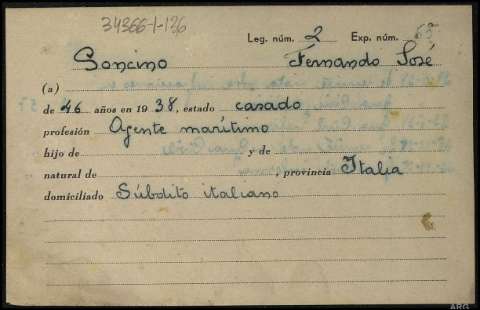 34366-1-136
Leg. núm. 2 Exp. núm. 65
Soncino Fernando José
(a)
de 46 años en 1938, estado casado
profesión Agente marítimo
hijo de y de
natural de , provincia Italia
domiciliado Súbdito italiano
ARG